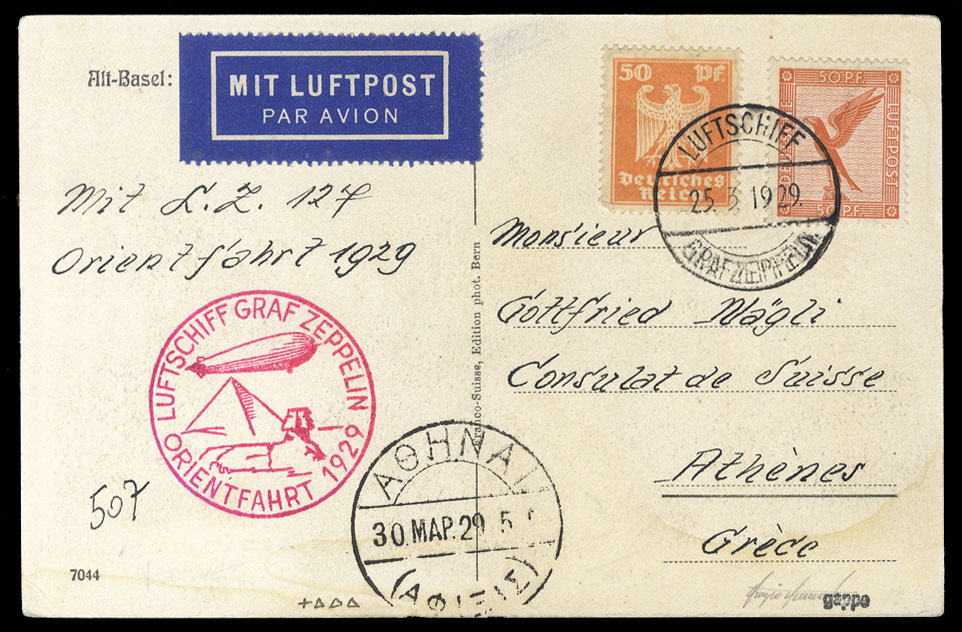 Alt-Basel:
MIT LUFTPOST
PAR AVION
50 Pf.
Deutsches
Reich
50 PF.
DEUTSCHE
LUFTPOST
50 PF.
LUFTSCHIFF
25. 3. 1929.
GRAF ZEPPELIN
Mit L. Z. 127
Orientfahrt 1929
LUFTSCHIFF GRAF ZEPPELIN
ORIENTFAHRT 1929
507
7044
Franco-Suisse, Edition phot. Bern
Monsieur
Gottfried Nägli
Consulat de Suisse
Athènes
Grèce
ΑΘΗΝΑΙ
30.ΜΑΡ.29 5
(ΑΦΙΞΙΣ)